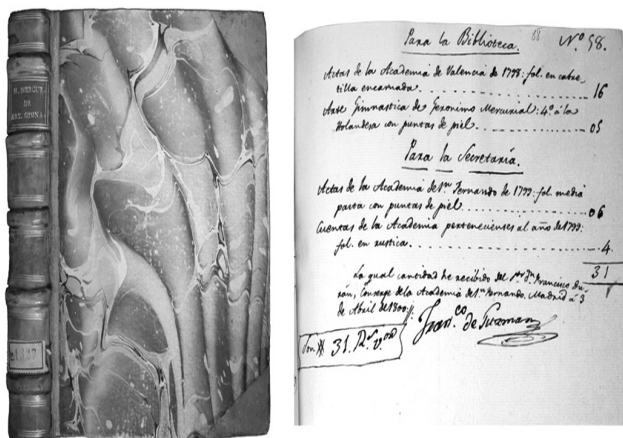 H. MERCUR.
DE
ART. GIMNA
1337
Para la Biblioteca.
68
Nº 58.
Actas de la Academia de Valencia de 1799: fol. en cabre
tilla encarnada. 16
Arte Gimnastica de Geronimo Mercurial: 4º á la
Holandesa con puntas de piel. 05
Para la Secretaría.
Actas de la Academia de Sn. Fernando de 1799: fol. media
pasta con puntas de piel. 06
Cuentas de la Academia pertenecientes al año de 1799:
fol. en rustica. 4.
31
La qual cantidad he recibido del Sr. Dn. Francisco Du
rán, Conserge de la Academia de Sn. Fernando. Madrid á 3
de Abril de 1800.
Franco. de Guzman
Son 31. Rs. von